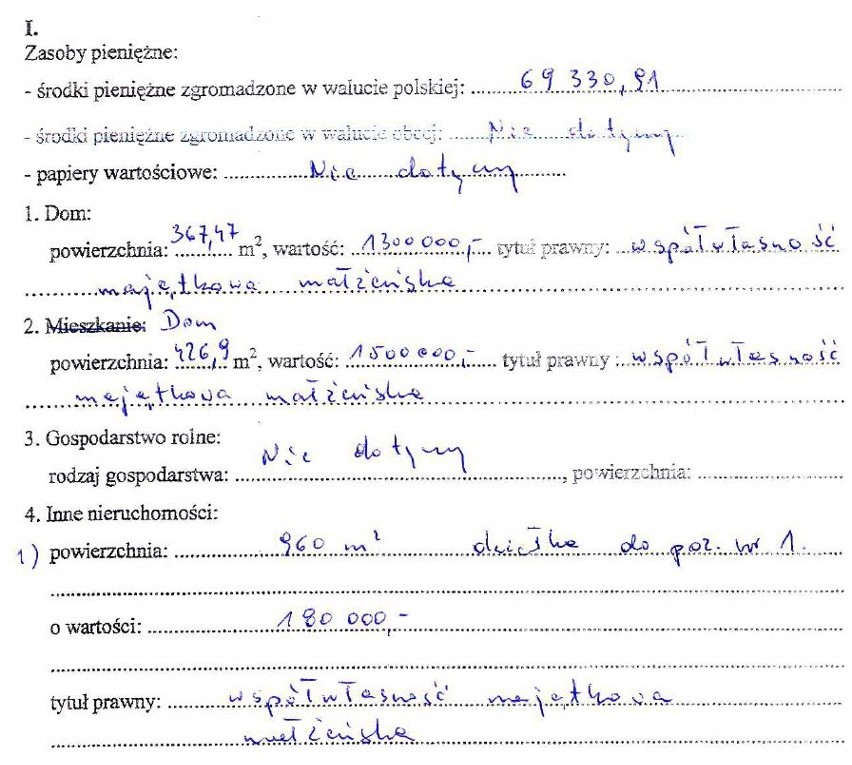 I.
Zasoby pieniężne:
- środki pieniężne zgromadzone w walucie polskiej: ........69 330,91........
- środki pieniężne zgromadzone w walucie obcej: ........Nie dotyczy........
- papiery wartościowe: ........Nie dotyczy........
1. Dom:
powierzchnia: 367,47 m², wartość: 1300 000,- tytuł prawny: współwłasność
majątkowa małżeńska
2. Mieszkanie: Dom
powierzchnia: 426,9 m², wartość: 1500 000,- tytuł prawny : współwłasność
majątkowa małżeńska
3. Gospodarstwo rolne:
rodzaj gospodarstwa: Nie dotyczy ........, powierzchnia: ........
4. Inne nieruchomości:
1) powierzchnia: ........960 m² działka do poz. nr 1.
o wartości: ........180 000,-........
tytuł prawny: ........współwłasność majątkowa
małżeńska